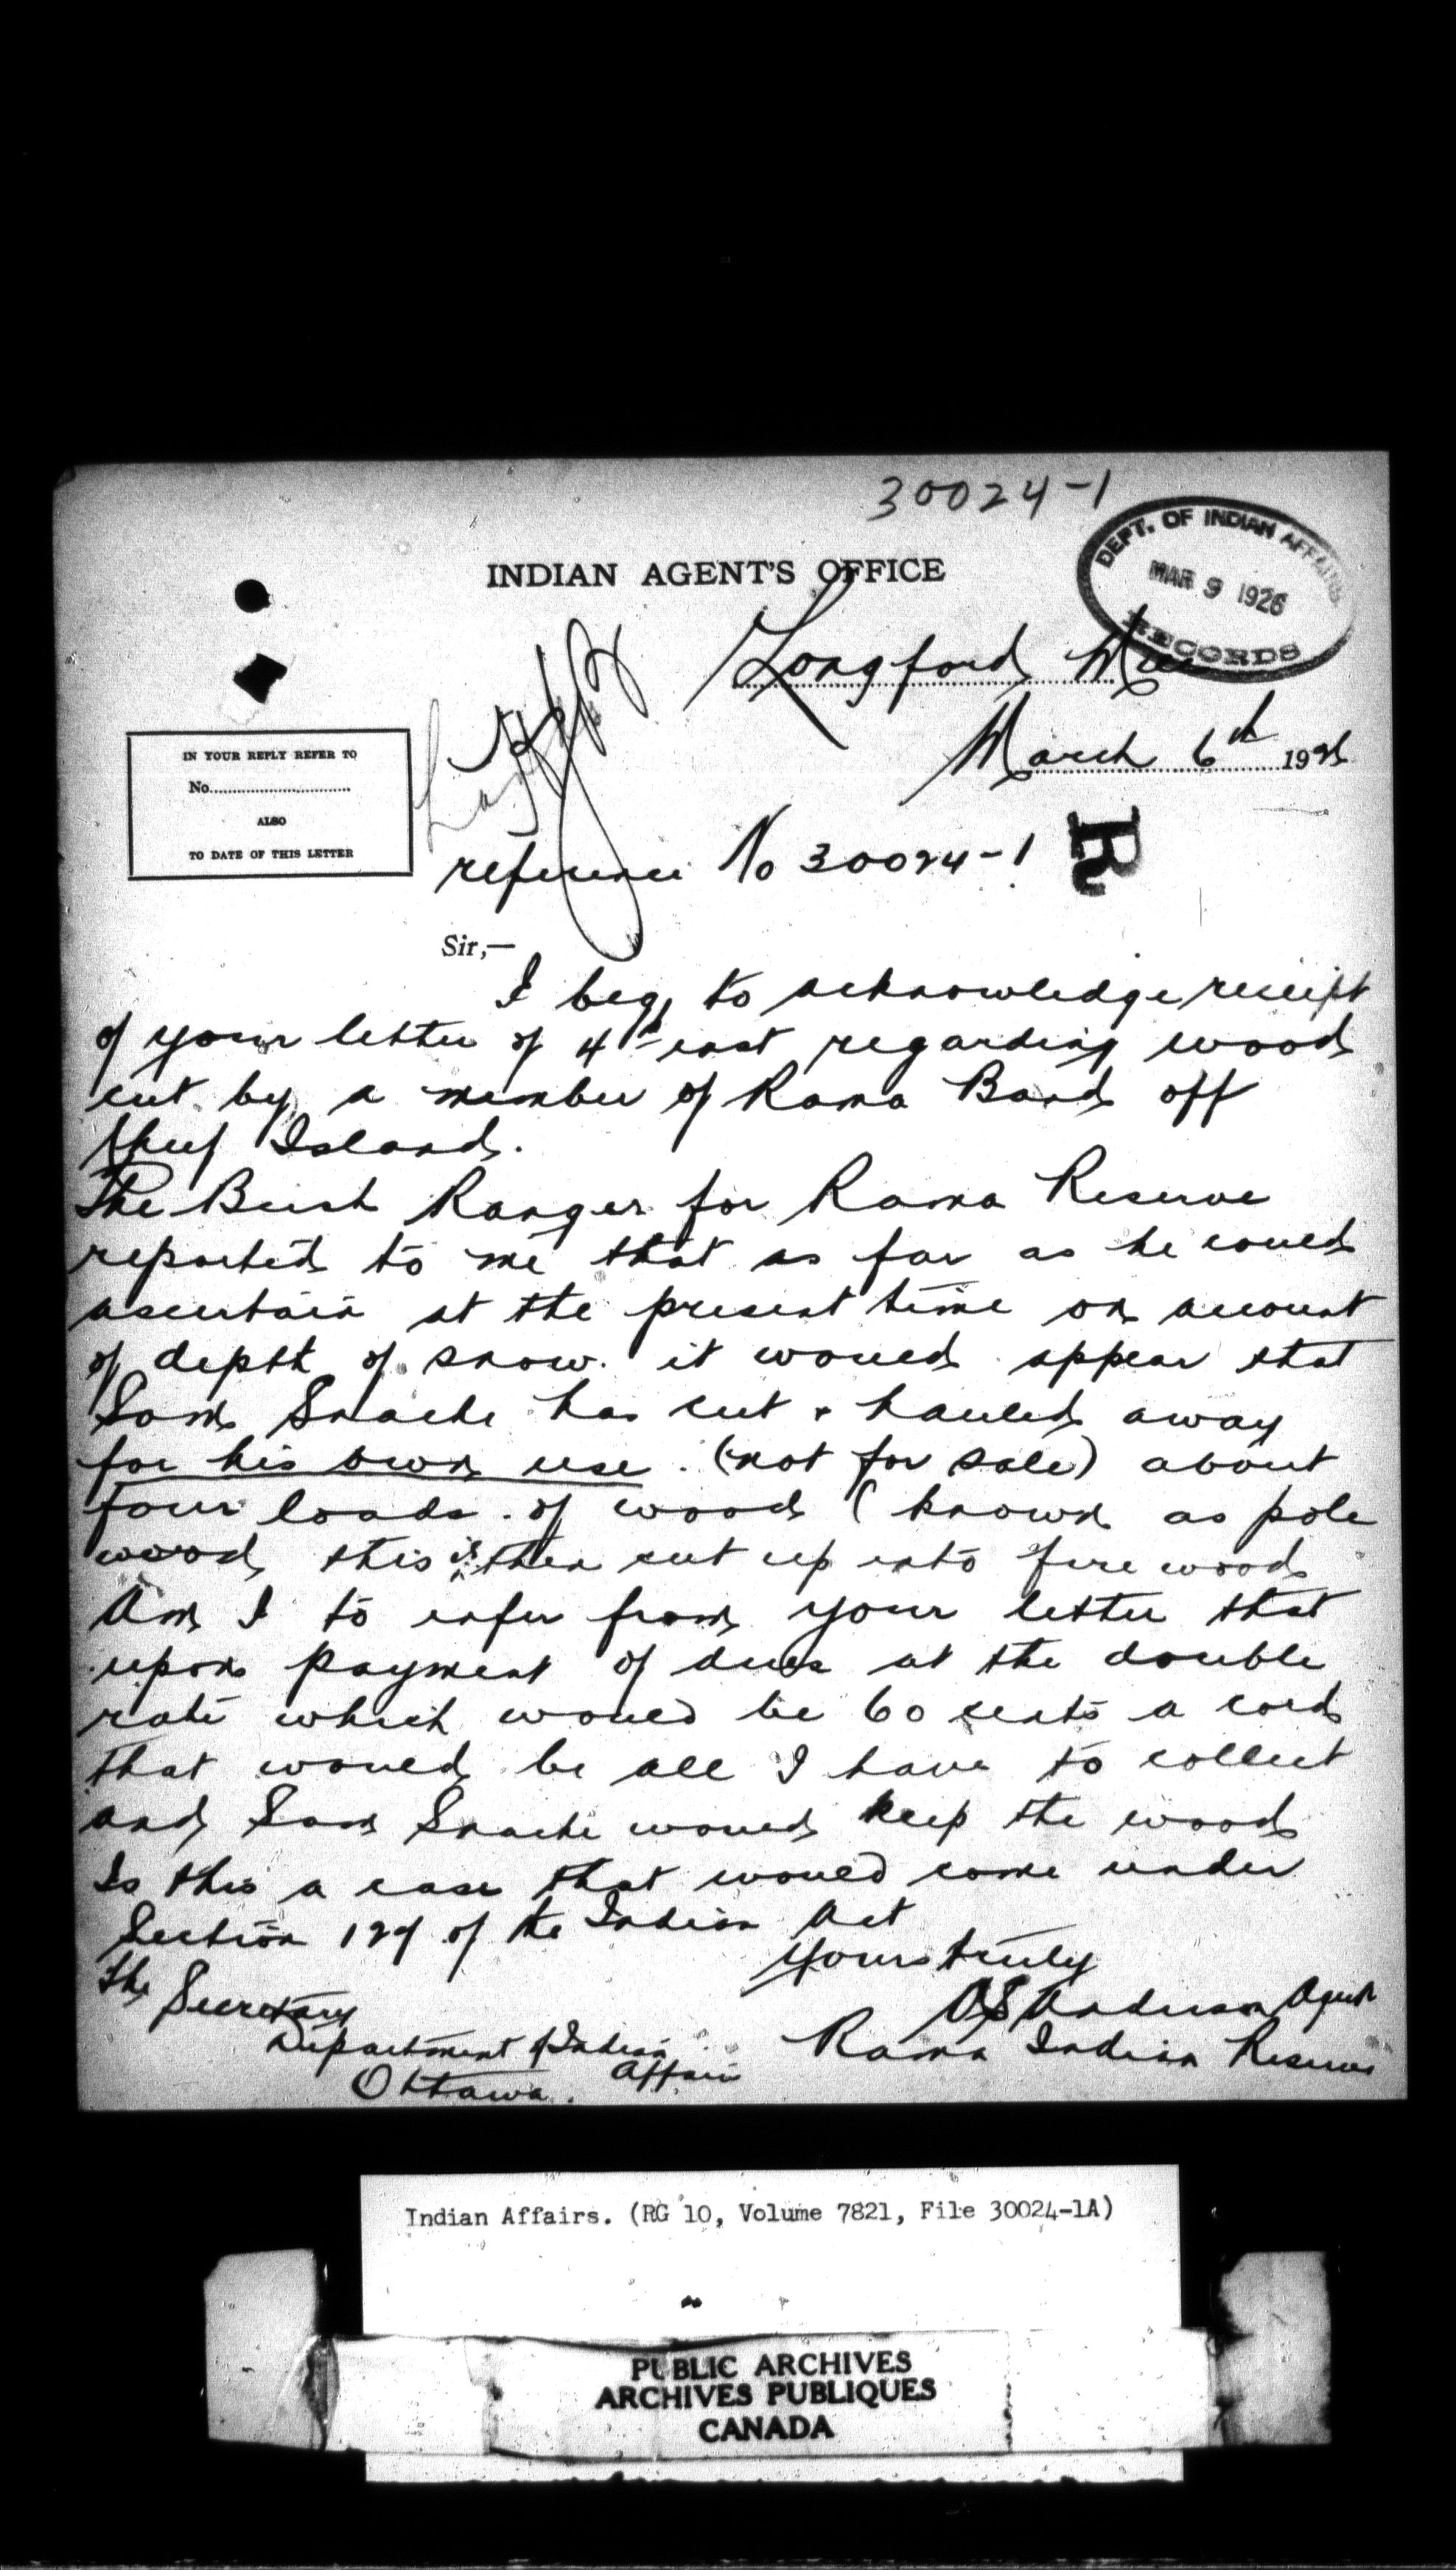 30024-1
INDIAN AGENT'S OFFICE
DEPT. OF INDIAN AFFAIRS
MAR 9 1926
RECORDS
Longford Mills
March 6th 1926
IN YOUR REPLY REFER TO
No.
ALSO
TO DATE OF THIS LETTER
R
reference No 30024-1
Sir,—
I beg to acknowledge receipt
of your letter of 4th inst regarding wood
cut by a member of Rama Band off
Chief Island.
The Bush Ranger for Rama Reserve
reported to me that as far as he could
ascertain at the present time on account
of depth of snow. it would appear that
Sam Snache has cut & hauled away
for his own use. (not for sale) about
four loads of wood (known as pole
wood, this is then cut up into fire wood
Am I to infer from your letter that
upon payment of dues at the double
rate which would be 60 cents a cord
that would be all I have to collect
and Sam Snache would keep the wood
Is this a case that would come under
Section 127 of the Indian Act
Yours truly
Anderson Agent
Rama Indian Reserve
The Secretary
Department of Indian
Affairs
Ottawa.
Indian Affairs. (RG 10, Volume 7821, File 30024-1A)
PUBLIC ARCHIVES
ARCHIVES PUBLIQUES
CANADA